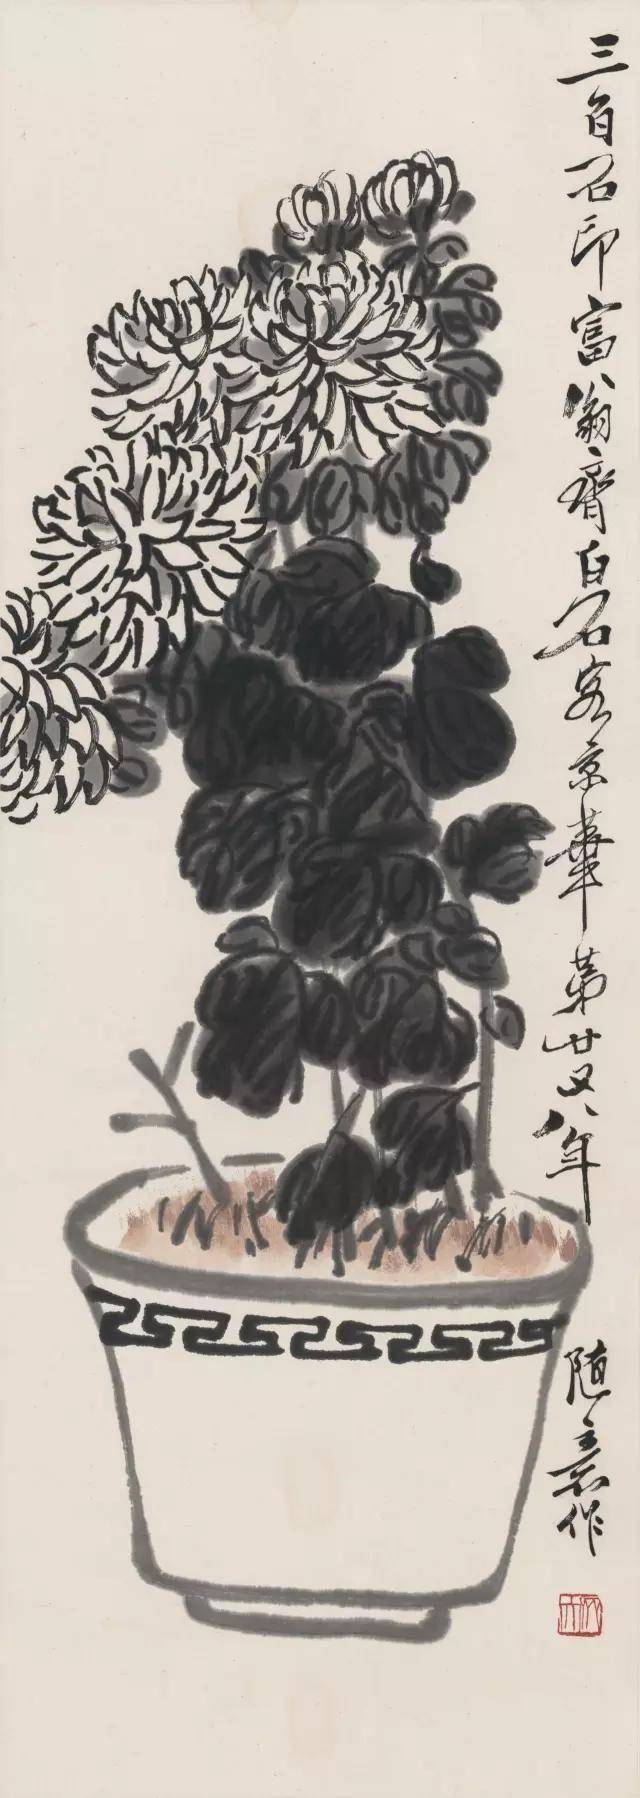 三百石印富翁齊白石客京華第廿又八年
随意作